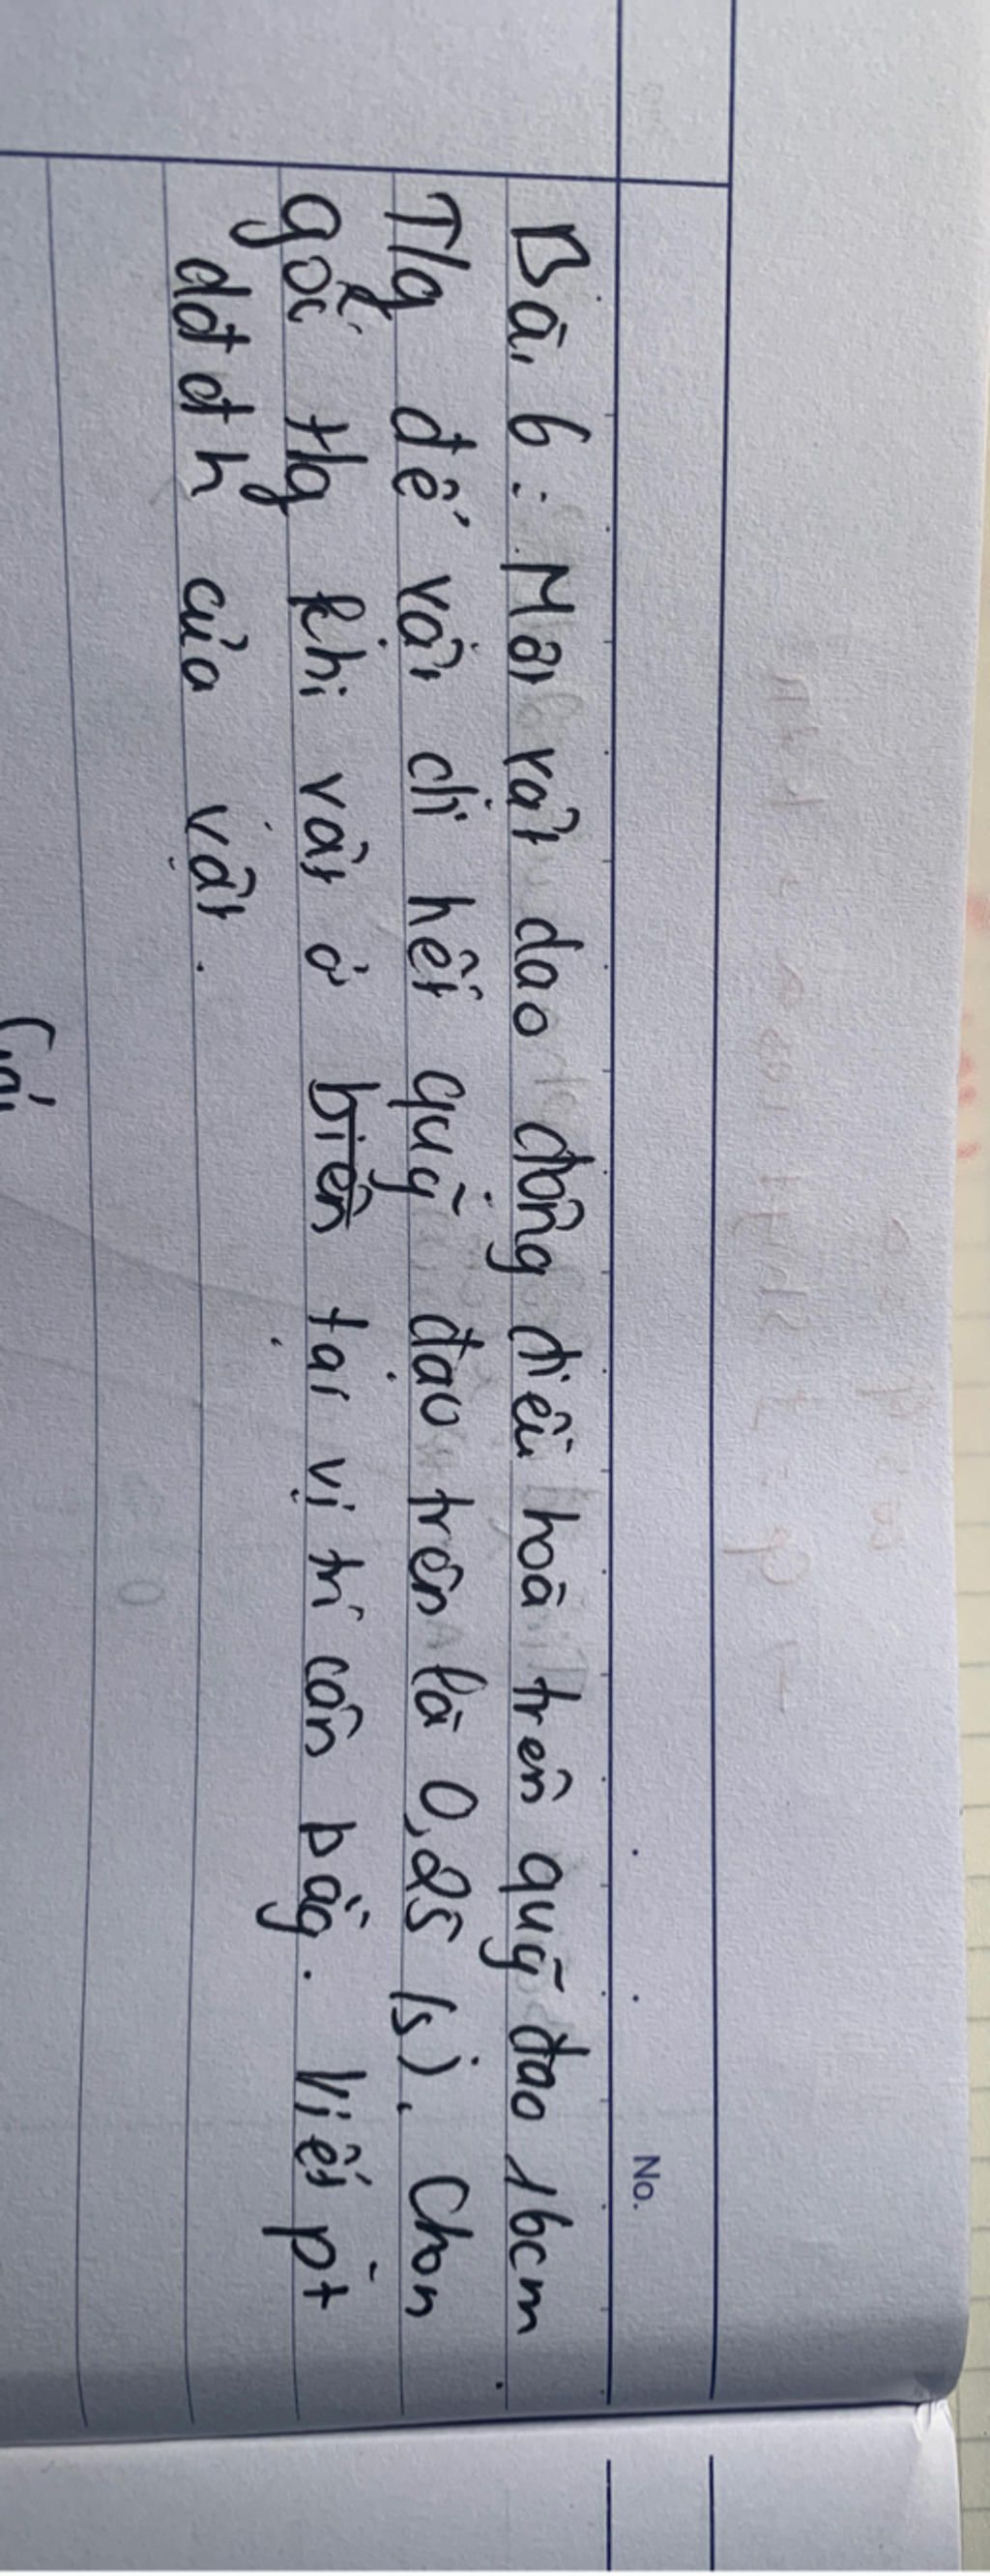 No.
Bài 6 : Một vật dao động điều hoà trên quỹ đạo 16cm
T/g để vật đi hết quỹ đạo trên là 0,25 (s). Chọn
gốc t/g khi vật ở biên tại vị trí cân bằg. Viết pt
dđđh của vật.
Giải